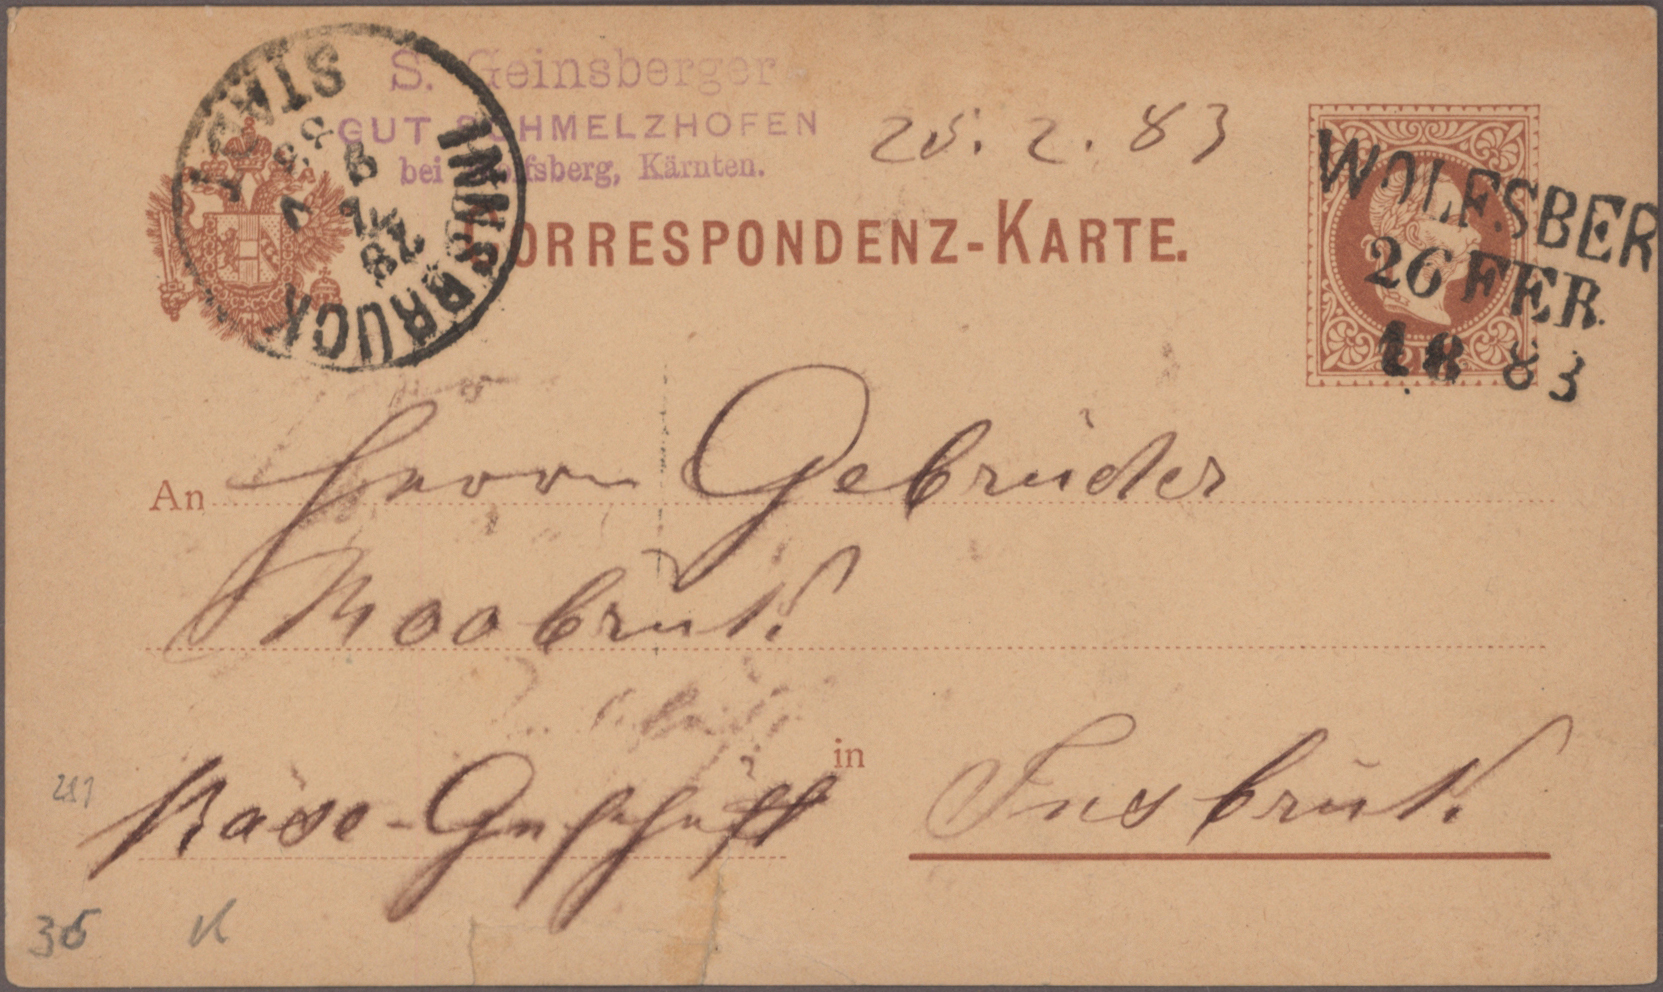 S. Geinsberger
GUT SCHMELZHOFEN
bei Wolfsberg, Kärnten.
25. 2. 83
INNSBRUCK
STADT
28
2
83
CORRESPONDENZ-KARTE.
WOLFSBER
26 FEB.
18 83
An Herrn Gebrüder
Moobruk.
Käse-Geschäft
in Insbruk.
36